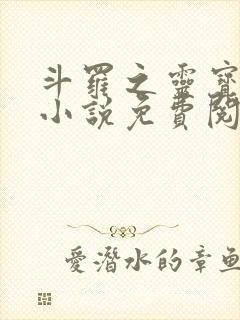 斗羅之靈寶
小說免費閱
愛潛水的章魚